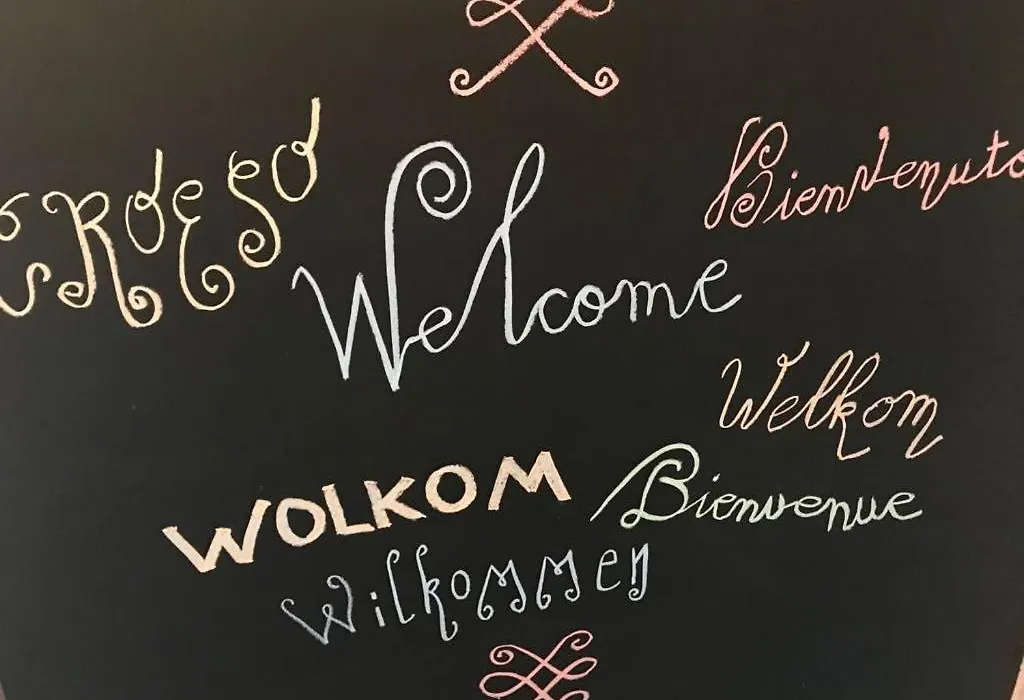 CROESO
Welcome
Bienvenuto
Welkom
WOLKOM
Bienvenue
Wilkommen